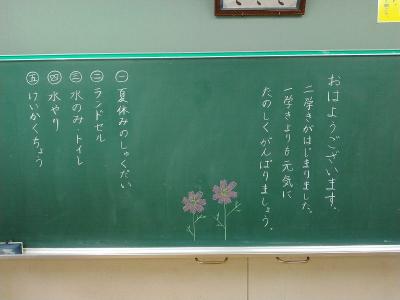 おはようございます。
二学きがはじまりました。
一学きよりも元気に
たのしくがんばりましょう。
㊀ 夏休みのしゅくだい
㊁ ランドセル
㊂ 水のみ・トイレ
㊃ 水やり
㊄ けいかくちょう